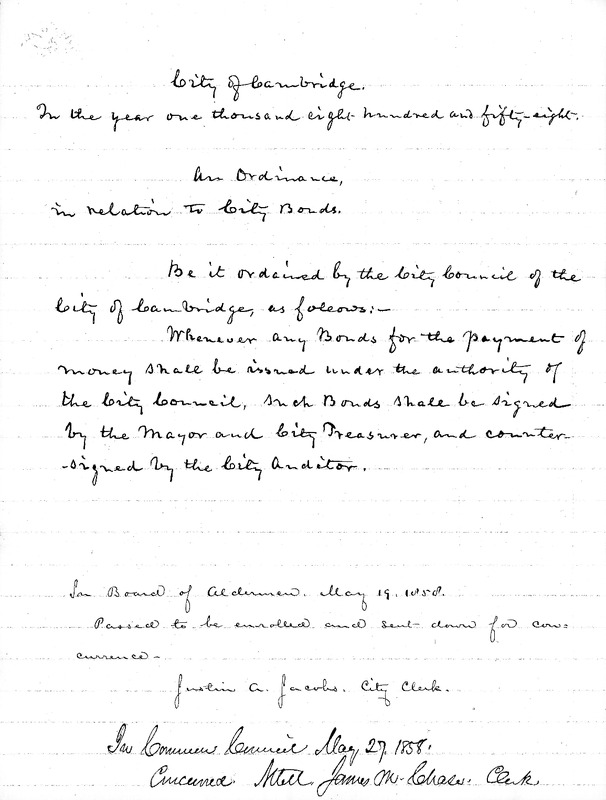 City of Cambridge.
In the year one thousand eight hundred and fifty-eight.
An Ordinance,
in relation to City Bonds.
Be it ordained by the City Council of the
City of Cambridge, as follows:—
Whenever any Bonds for the payment of
money shall be issued under the authority of
the City Council, such Bonds shall be signed
by the Mayor and City Treasurer, and counter-
-signed by the City Auditor.
In Board of Aldermen. May 19. 1858.
Passed to be enrolled and sent down for con=
currence—
Justin A. Jacobs. City Clerk.
In Common Council May 27. 1858.
Concurred. Attest James M. Chase. Clerk